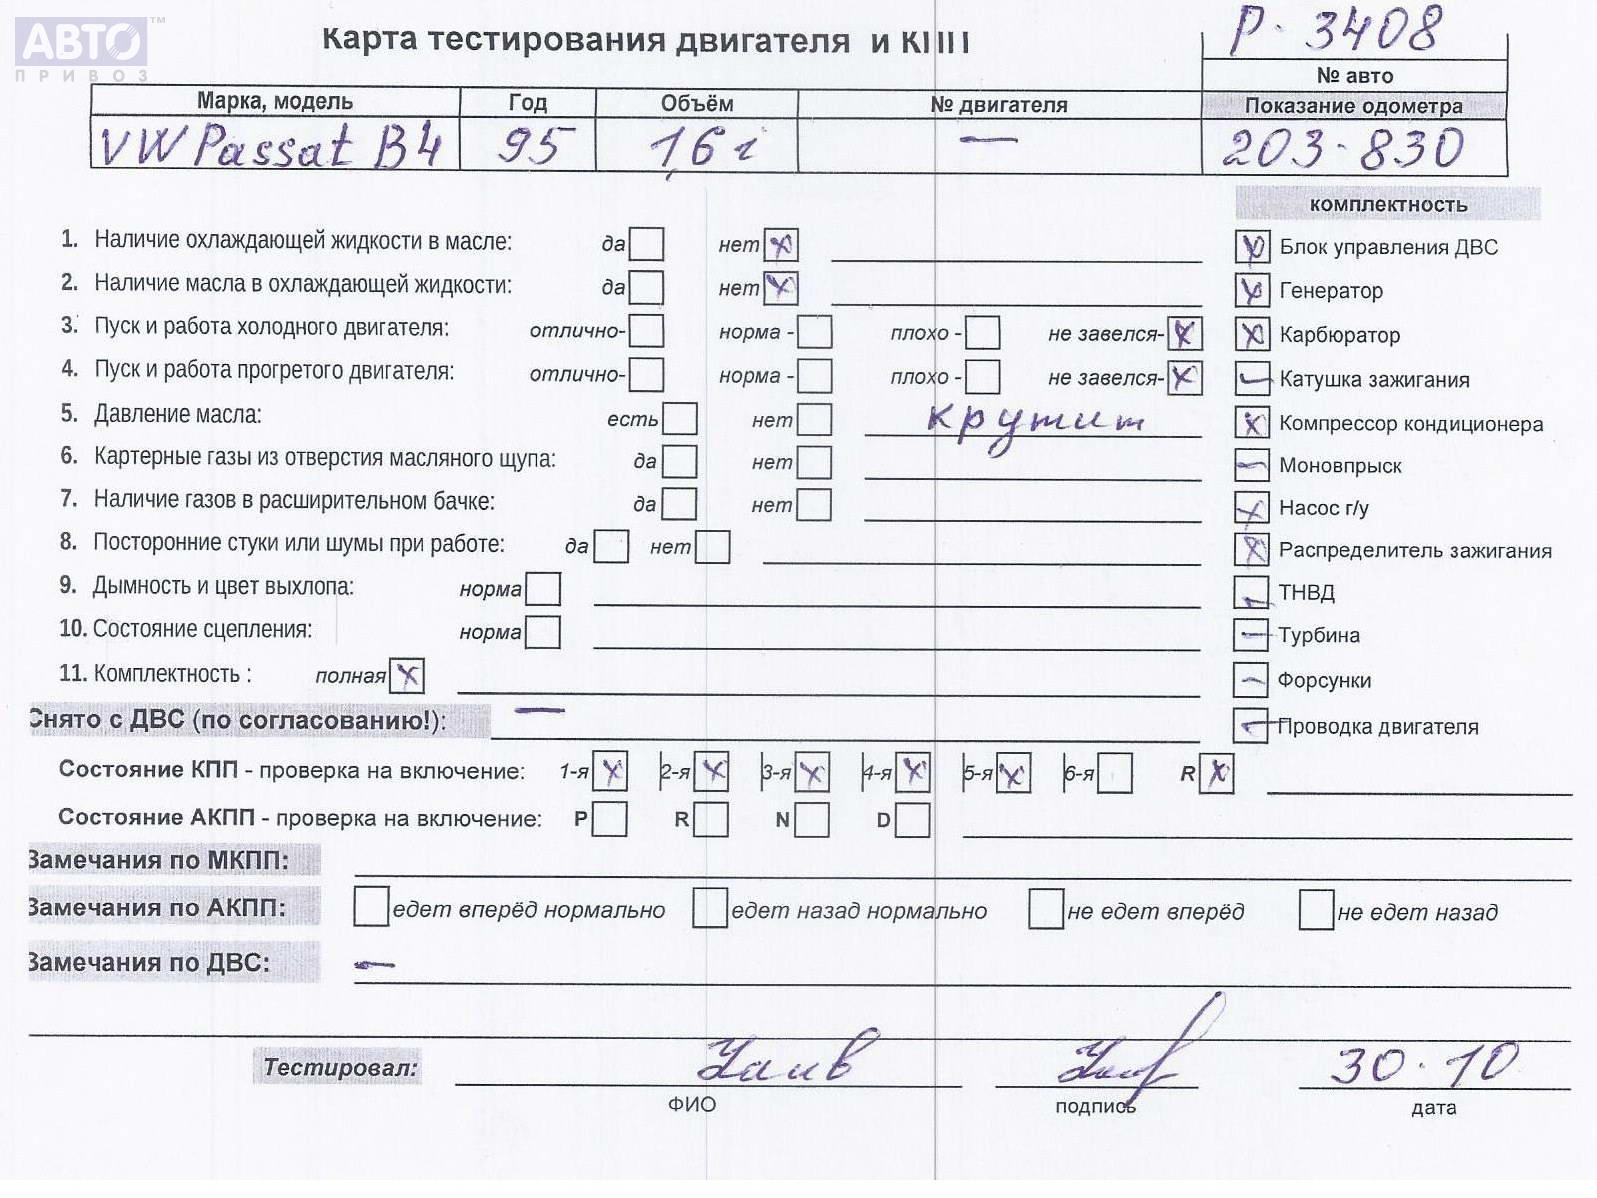 АВТО™
ПРИВОЗ
Карта тестирования двигателя и КПП
Р-3408
№ авто
Марка, модель Год Объём № двигателя Показание одометра
VW Passat B4 95 1,6 i — 203-830
комплектность
1. Наличие охлаждающей жидкости в масле: да нет x
Блок управления ДВС
2. Наличие масла в охлаждающей жидкости: да нет x
Генератор
3. Пуск и работа холодного двигателя: отлично- норма - плохо - не завелся- x
Карбюратор
4. Пуск и работа прогретого двигателя: отлично- норма - плохо - не завелся- x
Катушка зажигания
5. Давление масла: есть нет крутит
Компрессор кондиционера
6. Картерные газы из отверстия масляного щупа: да нет
Моновпрыск
7. Наличие газов в расширительном бачке: да нет
Насос г/у
8. Посторонние стуки или шумы при работе: да нет
Распределитель зажигания
9. Дымность и цвет выхлопа: норма
ТНВД
10. Состояние сцепления: норма
Турбина
11. Комплектность : полная x
Форсунки
Снято с ДВС (по согласованию!): —
Проводка двигателя
Состояние КПП - проверка на включение: 1-я x 2-я x 3-я x 4-я x 5-я x 6-я R x
Состояние АКПП - проверка на включение: P R N D
Замечания по МКПП:
Замечания по АКПП: едет вперёд нормально едет назад нормально не едет вперёд не едет назад
Замечания по ДВС: —
Тестировал: 30.10
ФИО подпись дата